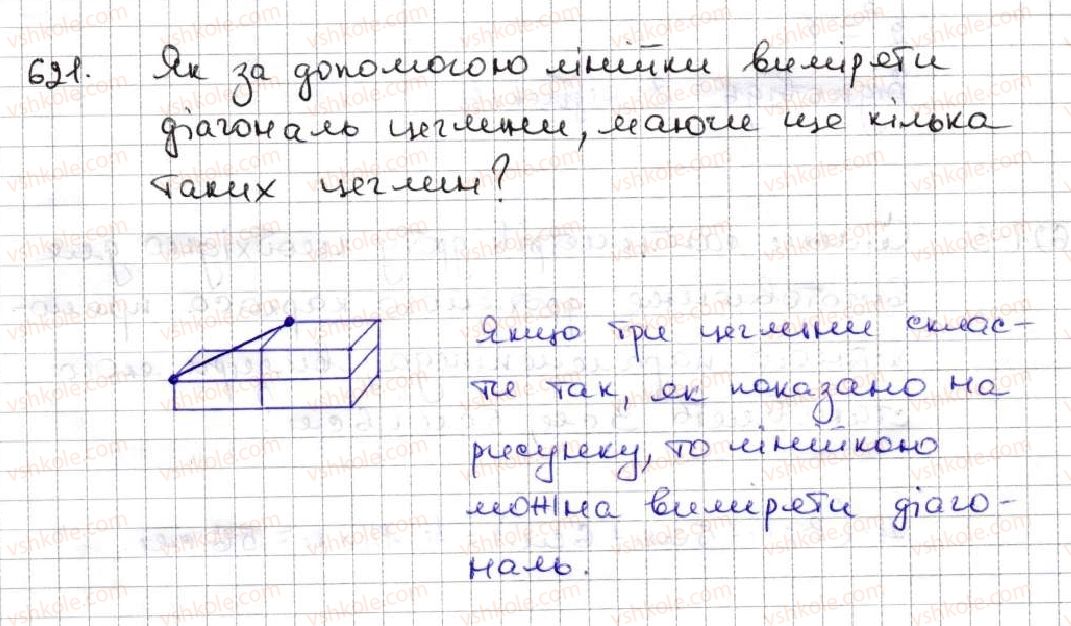 691. Як за допомогою лінійки виміряти
діагональ цеглини, маючи ще кілька
таких цеглин?
Якщо три цеглини склас-
ти так, як показано на
рисунку, то лінійкою
можна виміряти діаго-
наль.